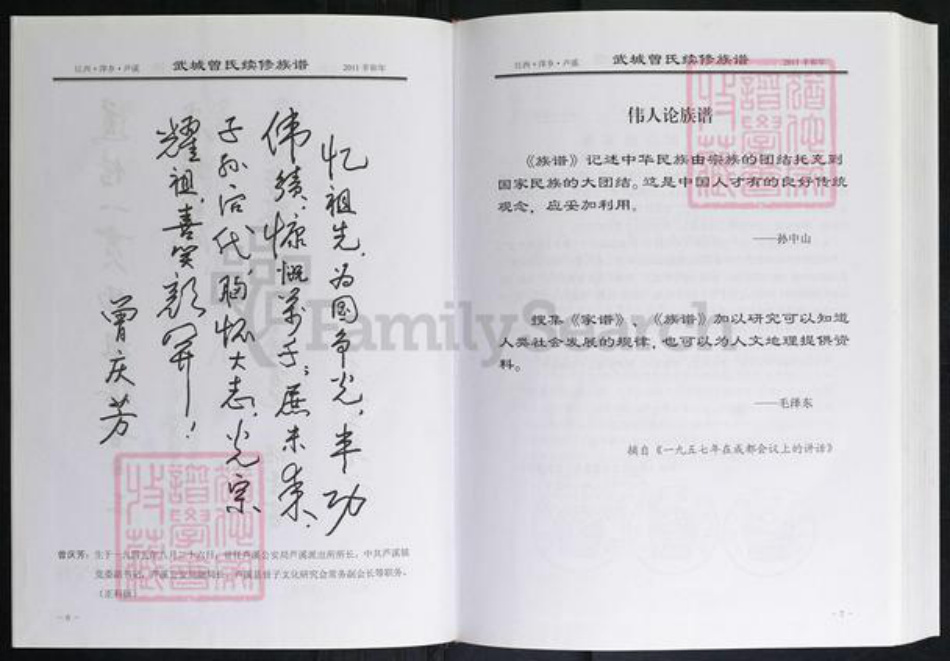 江西·萍乡·芦溪 武城曾氏续修族谱 2011辛卯年
忆祖先,为国争光,丰功
伟绩,慷慨万千;展未来,
子孙后代,胸怀大志,光宗
耀祖,喜笑颜开!
曾庆芳
曾庆芳:生于一九四五年八月二十六日,曾任芦溪公安局芦溪派出所所长,中共芦溪镇
党委副书记,芦溪县曾子文化研究会常务副会长等职务。
(正科级)
- 6 -
江西·萍乡·芦溪 武城曾氏续修族谱 2011辛卯年
伟人论族谱
《族谱》记述中华民族由宗族的团结扩充到
国家民族的大团结。这是中国人才有的良好传统
观念,应妥加利用。
——孙中山
搜集《家谱》、《族谱》加以研究可以知道
人类社会发展的规律,也可以为人文地理提供资
料。
——毛泽东
摘自《一九五七年在成都会议上的讲话》
- 7 -
FamilySearch